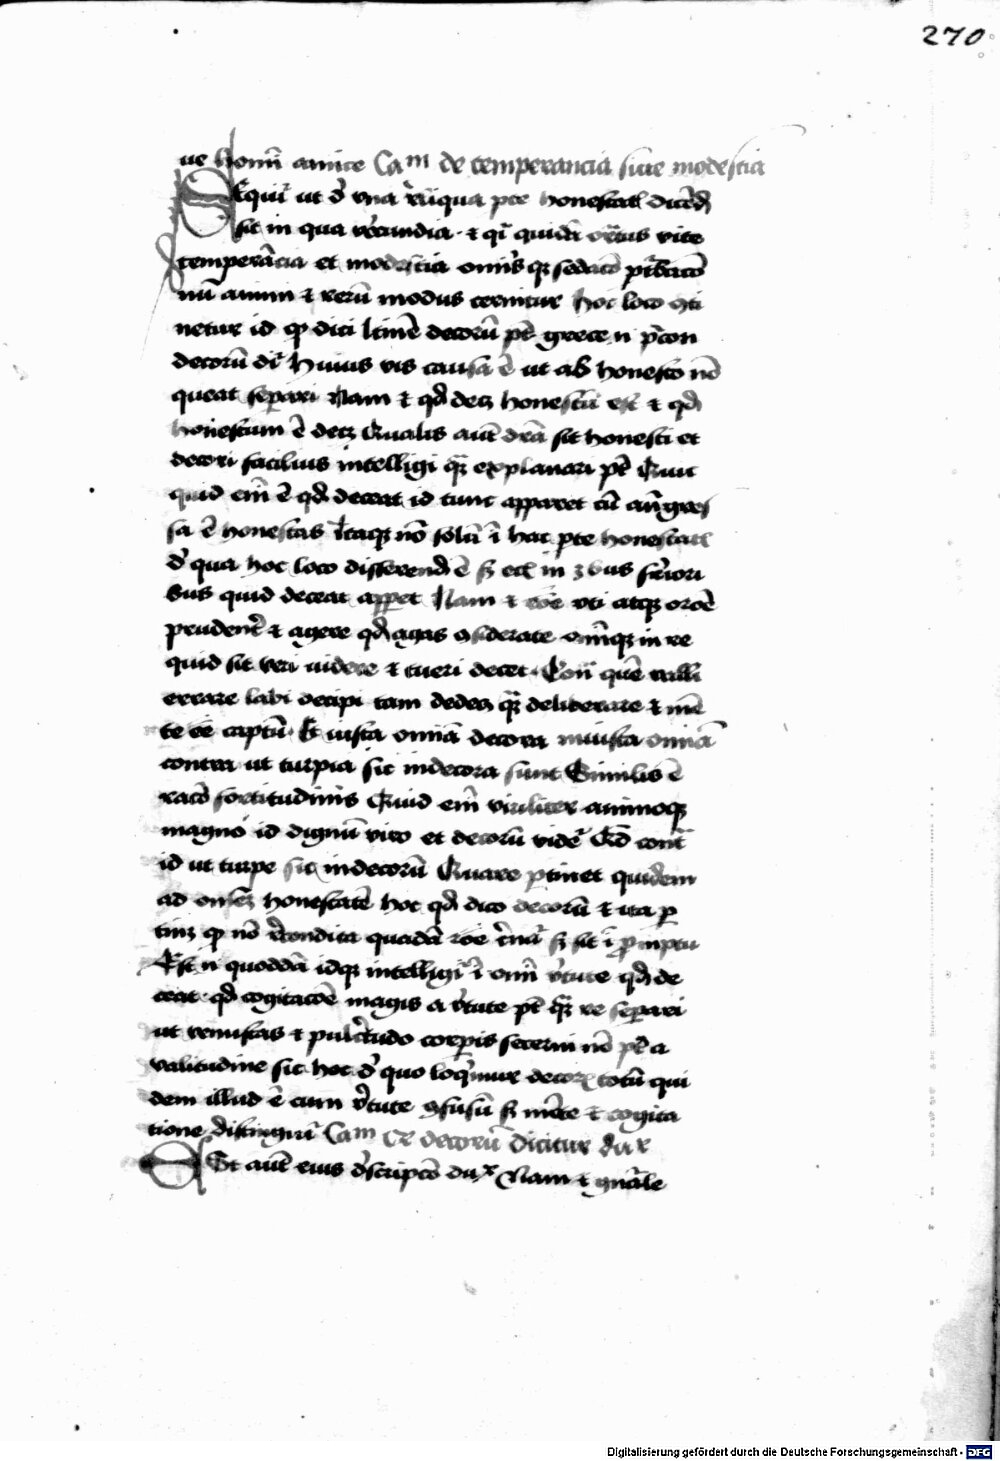 270
ue homī amice Cam de temperancia siue modestia
Sequiť ut đ una reliqua pte honestatꝭ dicēđ
sit in qua verecundia ⁊ qͥ quidā ornatus vite
temperācia et modestia omīs qꝫ sedacō pturbacō
nū animi ⁊ rerū modus cernitur Hoc loco ꝯti
netur id qđ dici latinē decorū pt grece n prepon
decorū dr̄ Huius vis causa ē ut ab honesto nō
queat separari Nam ⁊ qđ decꝫ honestū est ⁊ qđ
honestum ē decꝫ Qualis aut̄ dr̄a sit honesti et
decori facilius intelligi qꝫ explanari pt Quic
quid em̄ ē qđ deceat id tunc apparet cū an̄gres
sa ē honestas Itaqꝫ nō solū ī hac pte honestatꝭ
đ qua hoc loco disserendū ē sꝫ ecī in 3bus suꝑiori
bus quid deceat apparet Nam ⁊ rōe uti atqꝫ orōe
prudent̄ ⁊ agere qđ agas ꝯsiderate omīqꝫ in re
quid sit veri uidere ⁊ tueri decet Contͣ quē falli
errare labi decipi tam dedecꝫ qꝫ delirare ⁊ mē
te eē captū Et iusta omīa decora iniusta omīa
contra ut turpia sic indecora sunt Similis ē
racō fortitudinis Quid em̄ viriliter animoqꝫ
magno id dignū viro et decorū videt̄ Qđ contͣ
id ut turpe sic indecorū Quare ꝑtinet quidem
ad omnē honestatē hoc qđ dico decorū ⁊ ita ꝑ
tinꝫ qđ nō recondita quadā rōe cernat̄ sꝫ sit ī promptu
Est n̄ quoddā idqꝫ intelligiť ī omī vrtute qđ de
ceat qđ cogitacōe magis a vrtute pt qꝫ re separari
ut venustas ⁊ pulcritudo corporis secerni nō pt a
valitudine sic hoc đ quo loqͥmur decorū totū qui
dem illud ē cum vrtute ꝯfusū sꝫ mēte ⁊ cogita
tione distinguiť Cam Cr decorū dicitur dux
Est aut̄ eius descripcō dux Nam ⁊ gn̄ale
Digitalisierung gefördert durch die Deutsche Forschungsgemeinschaft - DFG